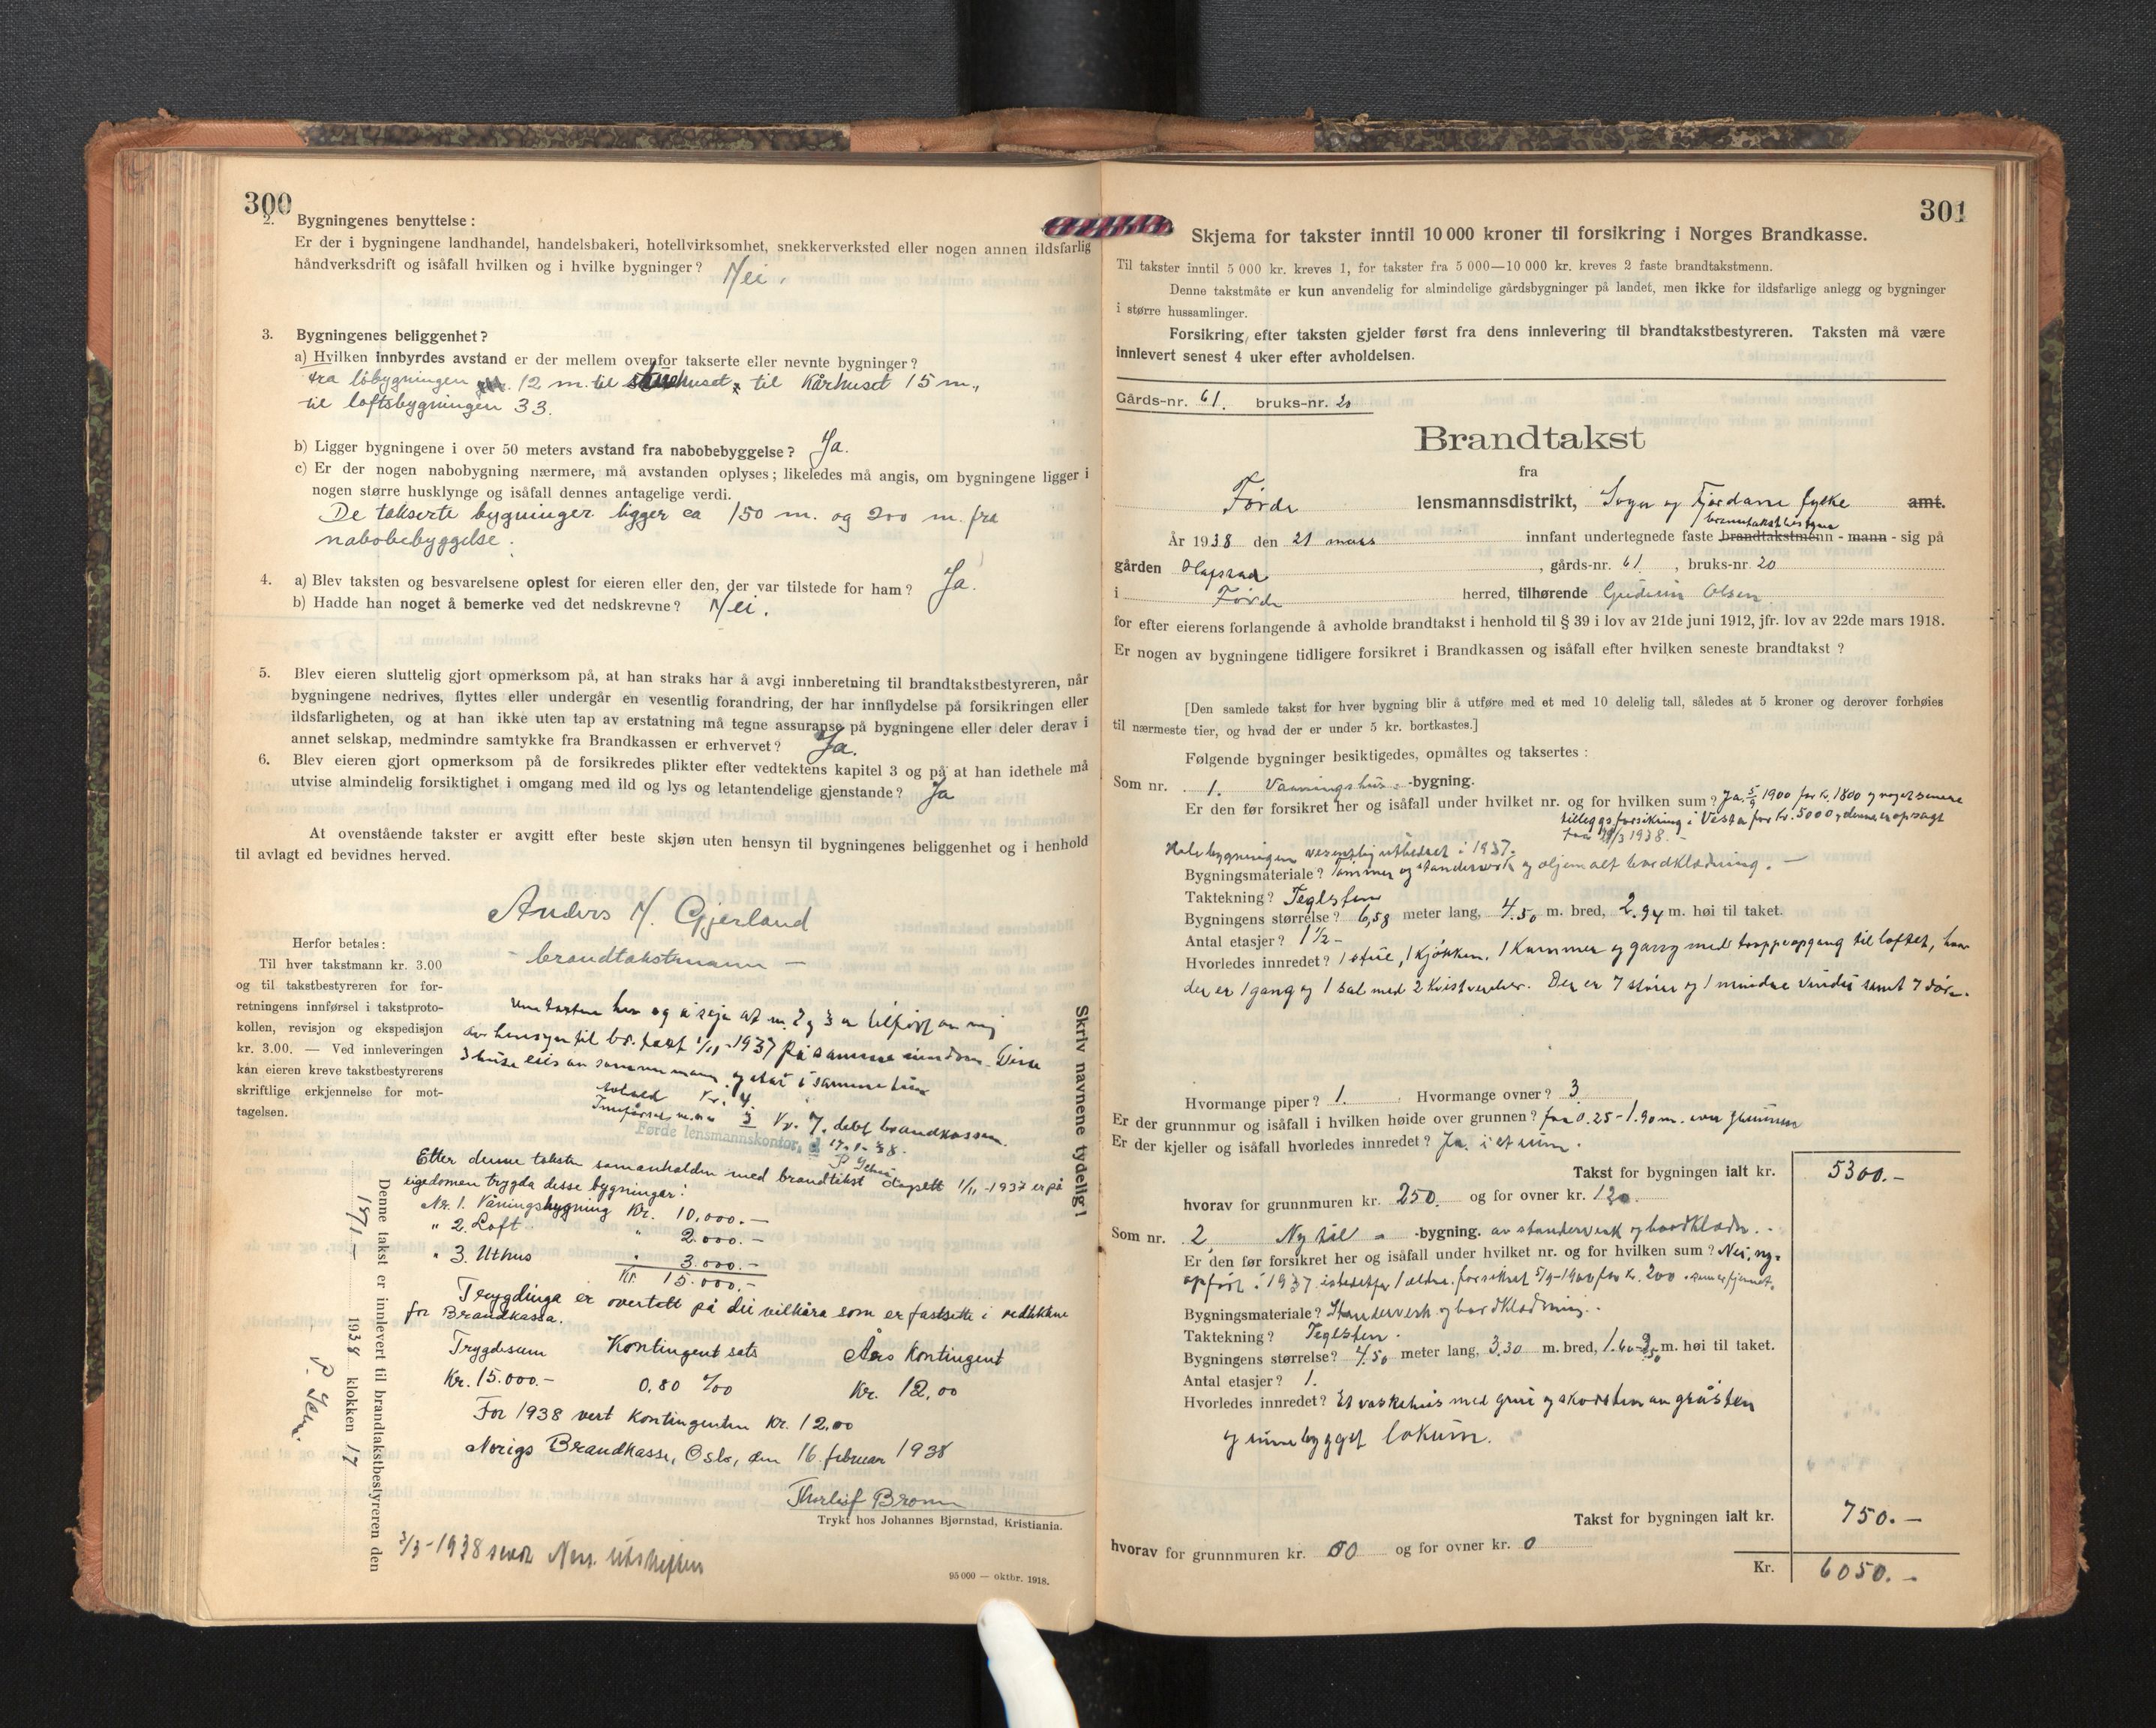 300
2. Bygningenes benyttelse:
Er der i bygningene landhandel, handelsbakeri, hotellvirksomhet, snekkerverksted eller nogen annen ildsfarlig
håndverksdrift og isåfall hvilken og i hvilke bygninger? Nei.
3. Bygningenes beliggenhet?
a) Hvilken innbyrdes avstand er der mellem ovenfor takserte eller nevnte bygninger?
fra løbygningen 12 m. til stuehuset, til kårhuset 15 m.,
til loftsbygningen 33.
b) Ligger bygningene i over 50 meters avstand fra nabobebyggelse? Ja.
c) Er der nogen nabobygning nærmere, må avstanden oplyses; likeledes må angis, om bygningene ligger i
nogen større husklynge og isåfall dennes antagelige verdi.
De takserte bygninger ligger ca 150 m. og 200 m. fra
nabobebyggelse.
4. a) Blev taksten og besvarelsene oplest for eieren eller den, der var tilstede for ham? Ja.
b) Hadde han noget å bemerke ved det nedskrevne? Nei.
5. Blev eieren sluttelig gjort opmerksom på, at han straks har å avgi innberetning til brandtakstbestyreren, når
bygningene nedrives, flyttes eller undergår en vesentlig forandring, der har innflydelse på forsikringen eller
ildsfarligheten, og at han ikke uten tap av erstatning må tegne assuranse på bygningene eller deler derav i
annet selskap, medmindre samtykke fra Brandkassen er erhvervet? Ja.
6. Blev eieren gjort opmerksom på de forsikredes plikter efter vedtektens kapitel 3 og på at han idethele må
utvise almindelig forsiktighet i omgang med ild og lys og letantendelige gjenstande? Ja
At ovenstående takster er avgitt efter beste skjøn uten hensyn til bygningenes beliggenhet og i henhold
til avlagt ed bevidnes herved.
Anders N. Gjerland
- brandtakstmann -
Herfor betales:
Til hver takstmann kr. 3.00
og til takstbestyreren for for-
retningens innførsel i takstproto-
kollen, revisjon og ekspedisjon
kr. 3.00. — Ved innleveringen
kan eieren kreve takstbestyrerens
skriftlige erkjennelse for mot-
tagelsen.
og å seja at nr. 2 og 3 er tilført av mig
av hensyn til br. takst 1/11-1937 på samme eiendom. Disse
3 huse eies av samme mann og står i samme
Kr. 4.
Innførsel m.m. 3 Kr. 7. debt brandkassen.
Førde lensmannskontor, d 17-1-38.
Etter denne taksten samanhalden med brandtakst dagsett 1/11-1937 er på
eigedomen trygda desse bygningar:
Nr. 1. Våningsbygning Kr. 10,000.-
" 2. Loft " 2.000.-
" 3. Uthus " 3.000.-
Kr. 15.000.-
Trygdinga er overtatt på dei vilkåra som er fastsette i vedtektene
for Brandkassa.
Trygdesum Kontingent sats Års kontingent
Kr. 15.000.- 0,80 ‰ Kr. 12,00
For 1938 vert kontingenten kr. 12,00
Norigs Brandkasse, Oslo, den 16. februar 1938
Thorleif Bronn
Trykt hos Johannes Bjørnstad, Kristiania.
2/3-1938 sendt Ners. utskriften
95 000 — oktbr. 1918.
Skriv navnene tydelig!
Denne takst er innlevert til brandtakstbestyreren den
15/1 — 1938 klokken 17
301
Skjema for takster inntil 10 000 kroner til forsikring i Norges Brandkasse.
Til takster inntil 5 000 kr. kreves 1, for takster fra 5 000—10 000 kr. kreves 2 faste brandtakstmenn.
Denne takstmåte er kun anvendelig for almindelige gårdsbygninger på landet, men ikke for ildsfarlige anlegg og bygninger
i større hussamlinger.
Forsikring efter taksten gjelder først fra dens innlevering til brandtakstbestyreren. Taksten må være
innlevert senest 4 uker efter avholdelsen.
Gårds-nr. 61. bruks-nr. 20
Brandtakst
fra
Førde lensmannsdistrikt, Sogn og Fjordane fylke amt.
branntakstbestyrer
År 1938 den 21 mars innfant undertegnede faste brandtakstmenn - mann - sig på
gården Hafstad, gårds-nr. 61, bruks-nr 20
i Førde herred, tilhørende Gudrun Olsen
for efter eierens forlangende å avholde brandtakst i henhold til § 39 i lov av 21de juni 1912, jfr. lov av 22de mars 1918.
Er nogen av bygningene tidligere forsikret i Brandkassen og isåfall efter hvilken seneste brandtakst?
[Den samlede takst for hver bygning blir å utføre med et med 10 delelig tall, således at 5 kroner og derover forhøies
til nærmeste tier, og hvad der er under 5 kr. bortkastes.]
Følgende bygninger besiktigedes, opmåltes og taksertes:
Som nr. 1. Vaaningshus -bygning.
Er den før forsikret her og isåfall under hvilket nr. og for hvilken sum? Ja. 5/9 1900 for kr. 1800 og noget senere
tilleggsforsikring i Vesta for kr. 5000, denne er opsagt
fra 21/3 1938. -
Hele bygningen vesentlig utbedret i 1937.
Bygningsmateriale? Tømmer og standerverk og oljemalt bordklædning. -
Taktekning? Teglsten
Bygningens størrelse? 6,58 meter lang, 4.50 m. bred, 2.94 m. høi til taket.
Antal etasjer? 1 1/2 -
Hvorledes innredet? 1 stue, 1 kjøkken, 1 kammer og gang med trappeopgang til loftet, hvor
der er 1 gang og 1 sal med 2 kvistværelser. Der er 7 større og 1 mindre vindu samt 7 dører.
Hvormange piper? 1. Hvormange ovner? 3
Er der grunnmur og isåfall i hvilken høide over grunnen? fra 0.25 - 1.90 m. over grunnen
Er der kjeller og isåfall hvorledes innredet? Ja. i et rum.
Takst for bygningen ialt kr. 5300.-
hvorav for grunnmuren kr. 250. og for ovner kr. 120.
Som nr. 2, Ny til -bygning. av standerverk og bordklædn. -
Er den før forsikret her og isåfall under hvilket nr. og for hvilken sum? Nei, ny-
opført i 1937 istedetfor 1 ældre. forsikret 5/9-1900 for kr. 200
Bygningsmateriale? Standerverk og bordklædning. -
Taktekning? Teglsten.
Bygningens størrelse? 4.50 meter lang, 3,30 m. bred, 1.60-2,50 m. høi til taket.
Antal etasjer? 1.
Hvorledes innredet? Et vaskehus med grue og skorsten av gråsten
og innebygget lokum.
Takst for bygningen ialt kr. 750.-
hvorav for grunnmuren kr. 00 og for ovner kr. 0
Kr. 6050.-